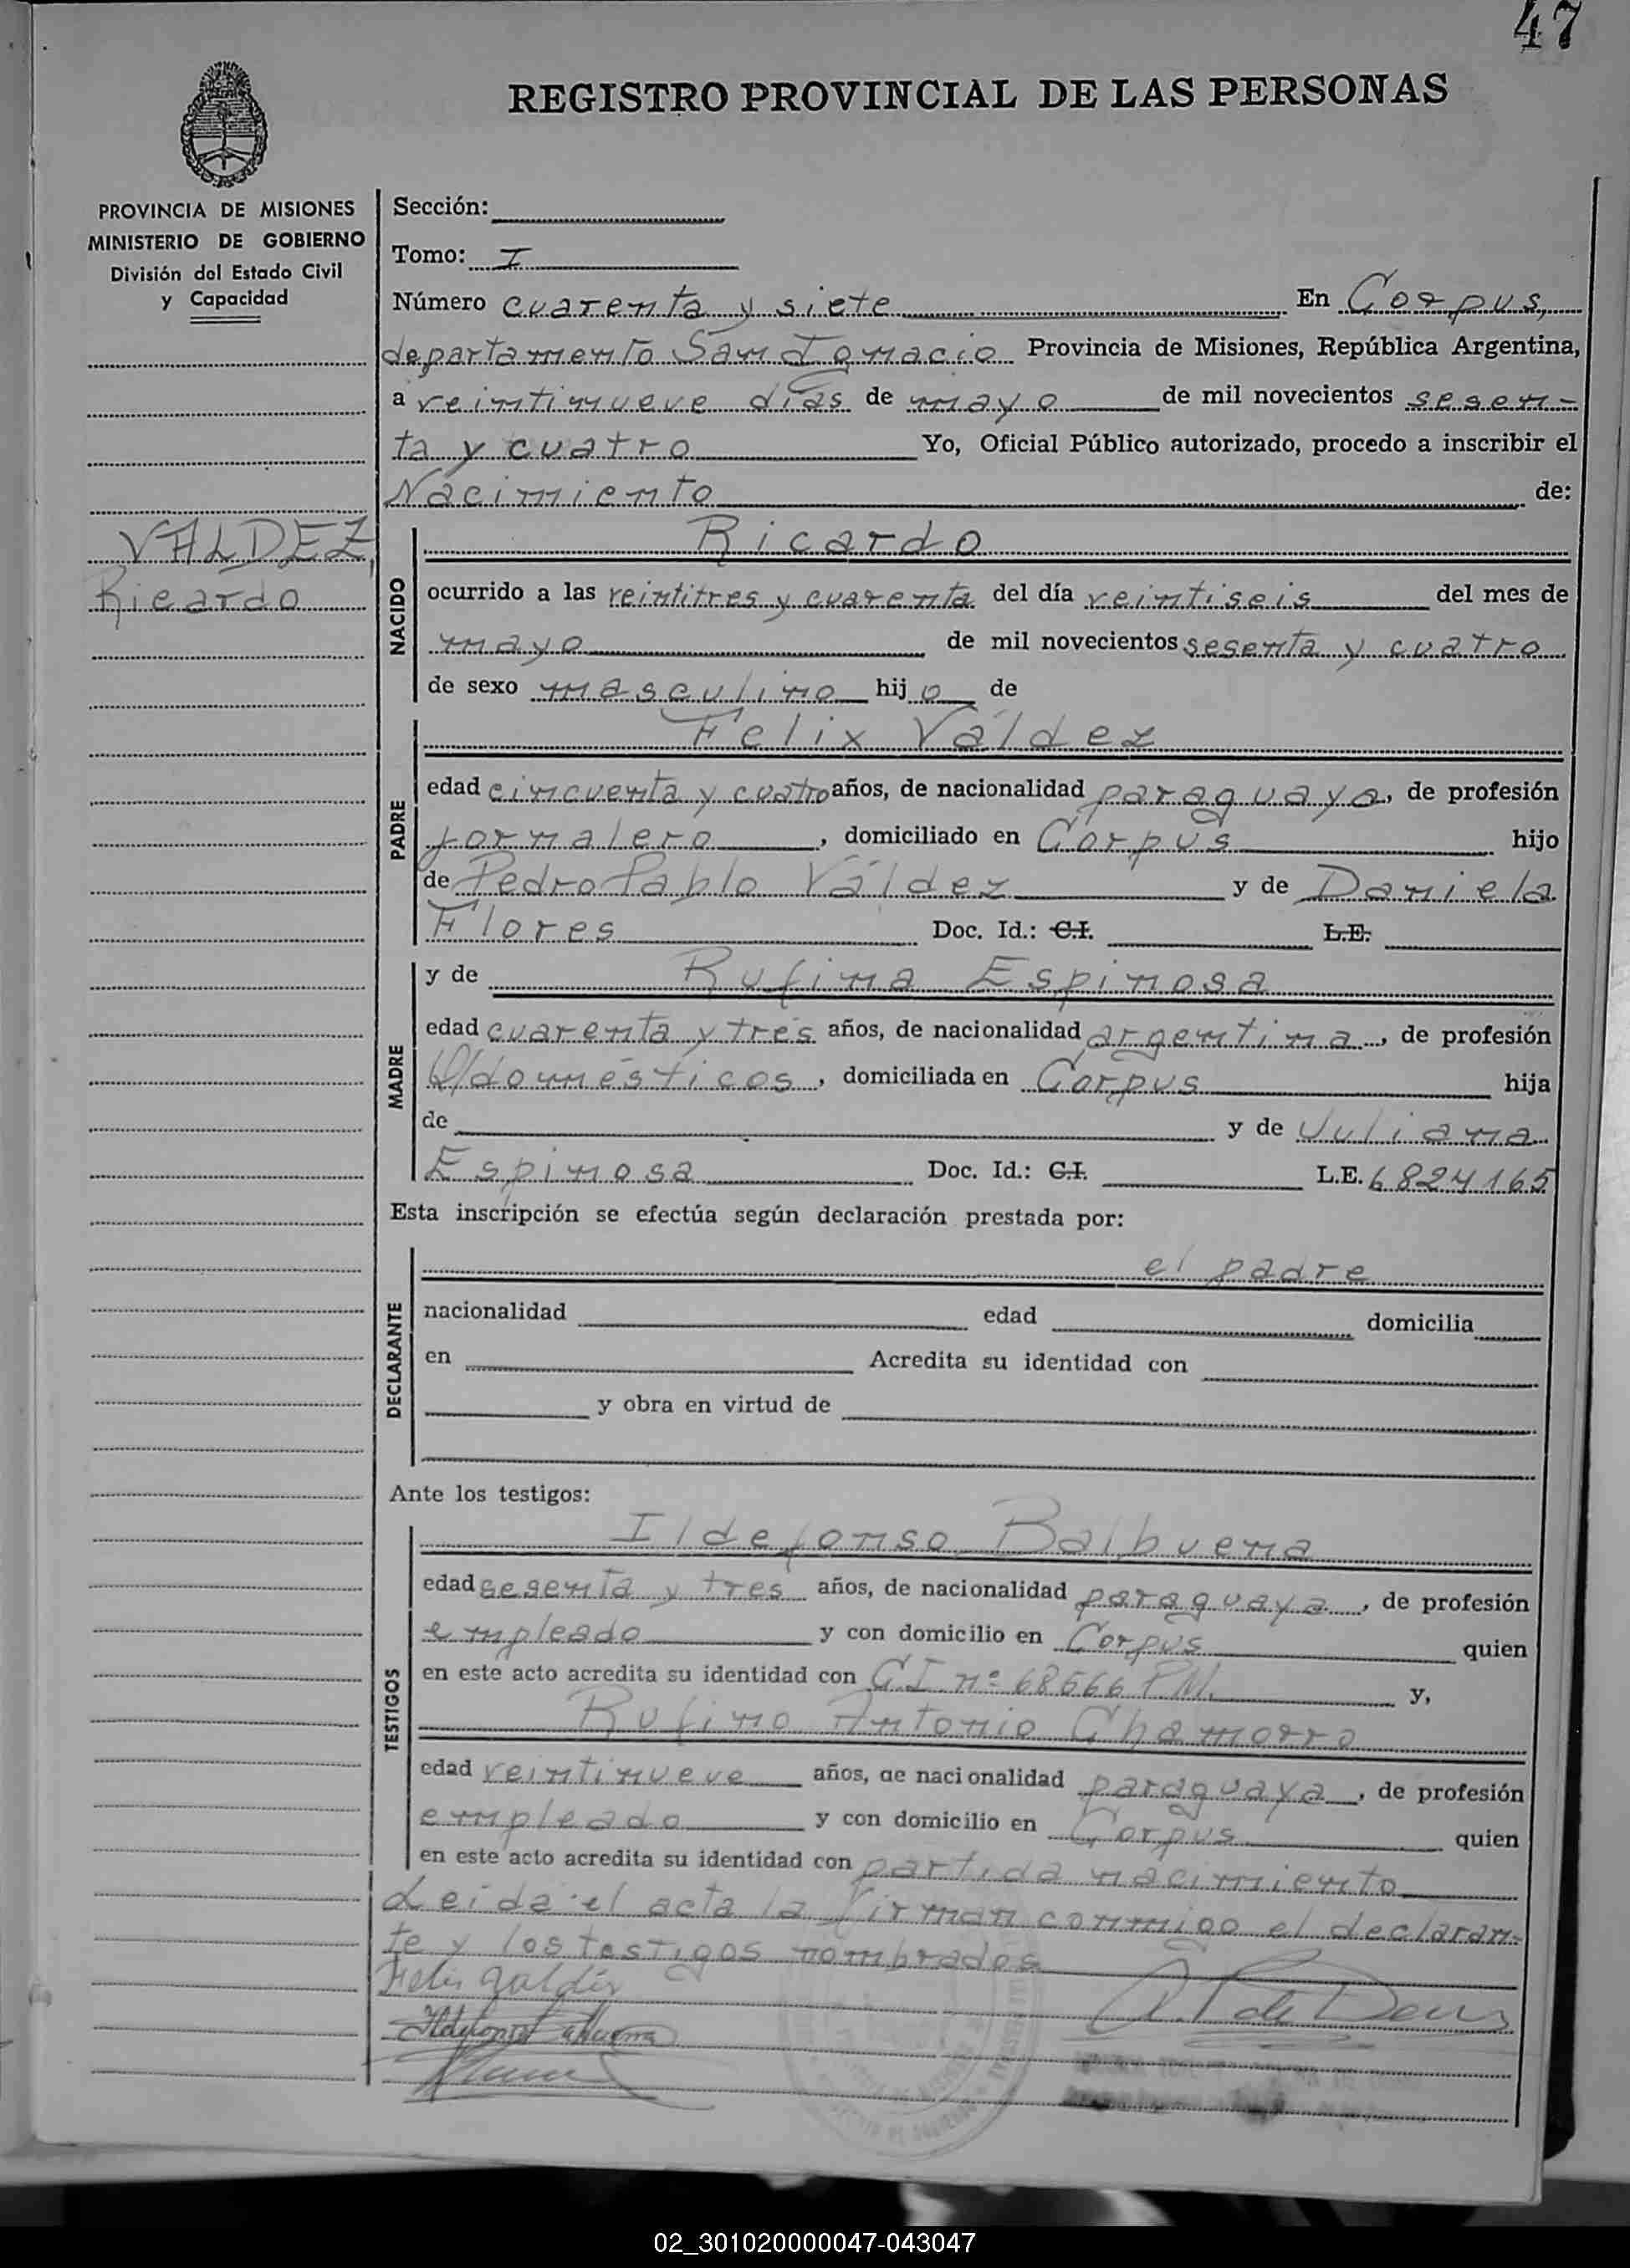 47
REGISTRO PROVINCIAL DE LAS PERSONAS
PROVINCIA DE MISIONES
MINISTERIO DE GOBIERNO
División del Estado Civil
y Capacidad
VALDEZ,
Ricardo
Sección:
Tomo: I
Número cuarenta y siete En Corpus,
departamento San Ignacio Provincia de Misiones, República Argentina,
a veintinueve días de mayo de mil novecientos sesen-
ta y cuatro Yo, Oficial Público autorizado, procedo a inscribir el
Nacimiento de:
NACIDO
Ricardo
ocurrido a las veintitres y cuarenta del día veintiseis del mes de
mayo de mil novecientos sesenta y cuatro
de sexo masculino hijo de
PADRE
Felix Váldez
edad cincuenta y cuatro años, de nacionalidad paraguaya, de profesión
jornalero, domiciliado en Corpus hijo
de Pedro Pablo Váldez y de Daniela
Flores Doc. Id.: C.I. L.E.
MADRE
y de Rufina Espinosa
edad cuarenta y tres años, de nacionalidad argentina, de profesión
Q/domésticos, domiciliada en Corpus hija
de y de Juliana
Espinosa Doc. Id.: C.I. L.E. 6824165
Esta inscripción se efectúa según declaración prestada por:
DECLARANTE
el padre
nacionalidad edad domicilia
en Acredita su identidad con
y obra en virtud de
Ante los testigos:
TESTIGOS
Ildefonso Balbuena
edad sesenta y tres años, de nacionalidad paraguaya, de profesión
empleado y con domicilio en Corpus quien
en este acto acredita su identidad con C.I nº 68566 P.M. y,
Rufino Antonio Chamorro
edad veintinueve años, de nacionalidad paraguaya, de profesión
empleado y con domicilio en Corpus quien
en este acto acredita su identidad con partida nacimiento
Leida el acta la firman conmigo el declaran-
te y los testigos nombrados
02_301020000047-043047